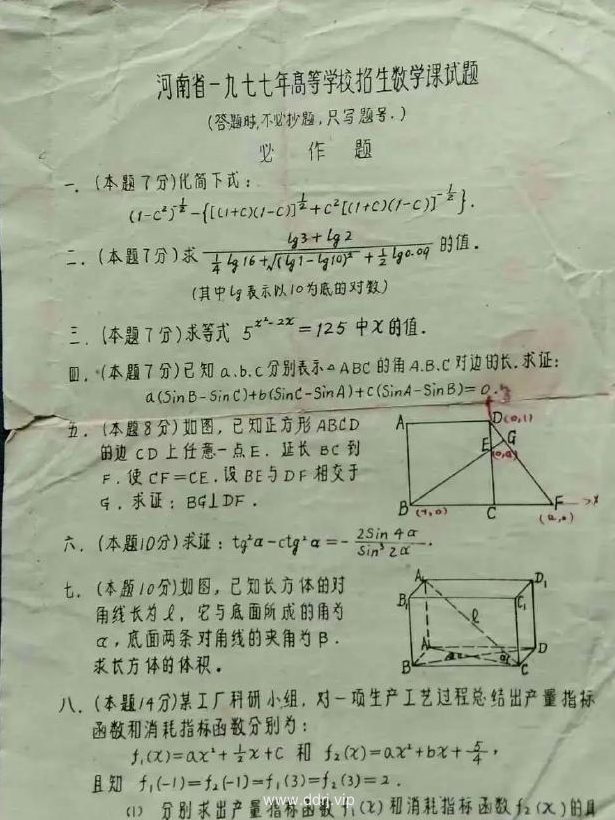 河南省一九七七年高等学校招生数学课试题
(答题时,不必抄题,只写题号.)
必 作 题
一.(本题7分)化简下式:
(1-c²)^{-1/2}-{[(1+c)(1-c)]^{1/2}+c²[(1+c)(1-c)]^{-1/2}}.
二.(本题7分)求 (lg3+lg2)/(1/4 lg16+√(lg1-lg10)²+1/2 lg0.09) 的值.
(其中lg表示以10为底的对数)
三.(本题7分)求等式 5^{x²-2x}=125 中x的值.
四.(本题7分)已知a.b.c分别表示△ABC的角A.B.C对边的长.求证:
a(SinB-SinC)+b(SinC-SinA)+c(SinA-SinB)=0.
五.(本题8分)如图,已知正方形ABCD
的边CD上任意一点E.延长BC到
F.使CF=CE.设BE与DF相交于
G.求证:BG⊥DF.
A
D(0,1)
E
G
(0,a)
B
(-1,0)
C
F
(a,0)
x
六.(本题10分)求证:tg²α-ctg²α=-2Sin4α/Sin³2α.
七.(本题10分)如图,已知长方体的对
角线长为l,它与底面所成的角为
α,底面两条对角线的夹角为β.
求长方体的体积.
A₁
D₁
B₁
C₁
l
A
D
B
α
C
八.(本题14分)某工厂科研小组,对一项生产工艺过程总结出产量指标
函数和消耗指标函数分别为:
f₁(x)=ax²+1/2x+c 和 f₂(x)=ax²+bx+5/4,
且知 f₁(-1)=f₂(-1)=f₁(3)=f₂(3)=2.
www.ddri.vip
(1) 分别求出产量指标函数f₁(x)和消耗指标函数f₂(x)的具